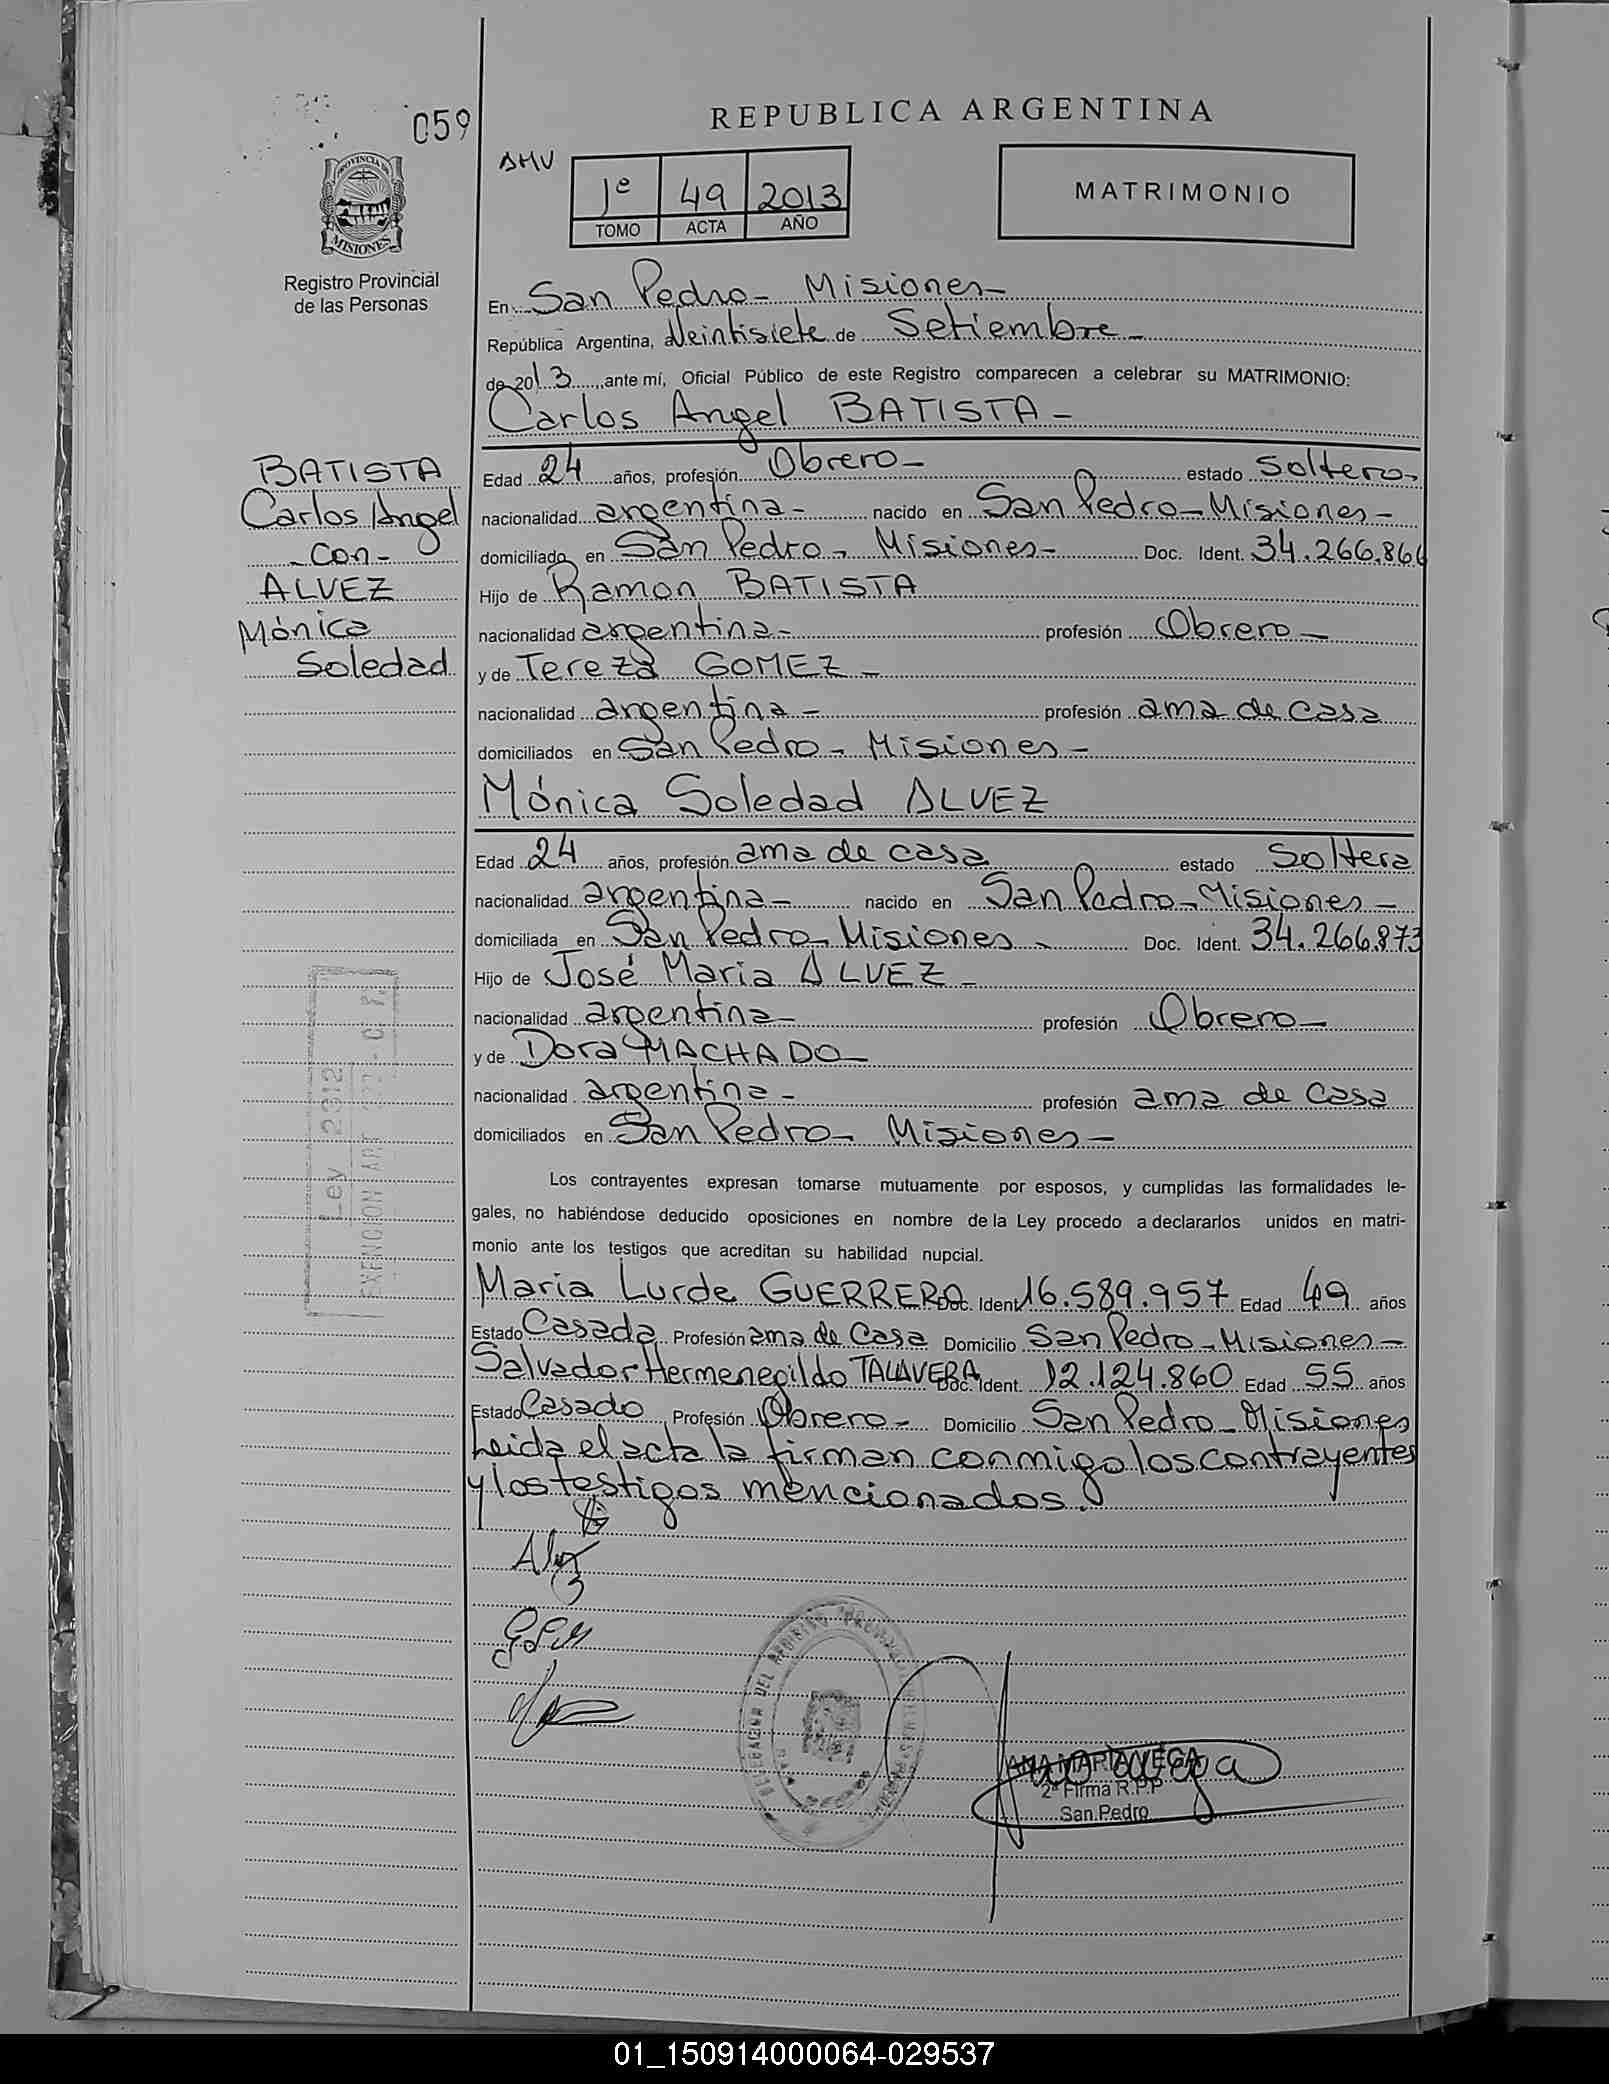 059
REPUBLICA ARGENTINA
AMV
1º 49 2013
TOMO ACTA AÑO
MATRIMONIO
PROVINCIA DE
MISIONES
Registro Provincial
de las Personas
En San Pedro - Misiones -
República Argentina, Veintisiete de Setiembre -
de 2013, ante mí, Oficial Público de este Registro comparecen a celebrar su MATRIMONIO:
Carlos Angel BATISTA -
BATISTA
Carlos Angel
- con -
ALVEZ
Mónica
Soledad
Edad 24 años, profesión Obrero - estado Soltero -
nacionalidad argentina - nacido en San Pedro - Misiones -
domiciliado en San Pedro - Misiones - Doc. Ident. 34.266.866
Hijo de Ramon BATISTA
nacionalidad argentina - profesión Obrero -
y de Tereza GOMEZ -
nacionalidad argentina - profesión ama de casa
domiciliados en San Pedro - Misiones -
Mónica Soledad ALVEZ
Edad 24 años, profesión ama de casa estado Soltera
nacionalidad argentina - nacido en San Pedro - Misiones -
domiciliada en San Pedro - Misiones - Doc. Ident. 34.266.873
Hijo de José Maria ALVEZ -
nacionalidad argentina - profesión Obrero -
y de Dora MACHADO -
nacionalidad argentina - profesión ama de casa
domiciliados en San Pedro - Misiones -
Ley 2312
EXENCION ART
Los contrayentes expresan tomarse mutuamente por esposos, y cumplidas las formalidades le-
gales, no habiéndose deducido oposiciones en nombre de la Ley procedo a declararlos unidos en matri-
monio ante los testigos que acreditan su habilidad nupcial.
Maria Lurde GUERRERO Doc. Ident. 16.589.957 Edad 49 años
Estado Casada Profesión ama de Casa Domicilio San Pedro - Misiones -
Salvador Hermenegildo TALAVERA Doc. Ident. 12.124.860 Edad 55 años
Estado Casado Profesión Obrero - Domicilio San Pedro - Misiones
Leida el acta la firman conmigo los contrayentes
y los testigos mencionados.
ANA MARIA VEGA
2ª Firma R.P.P
San Pedro
01_150914000064-029537